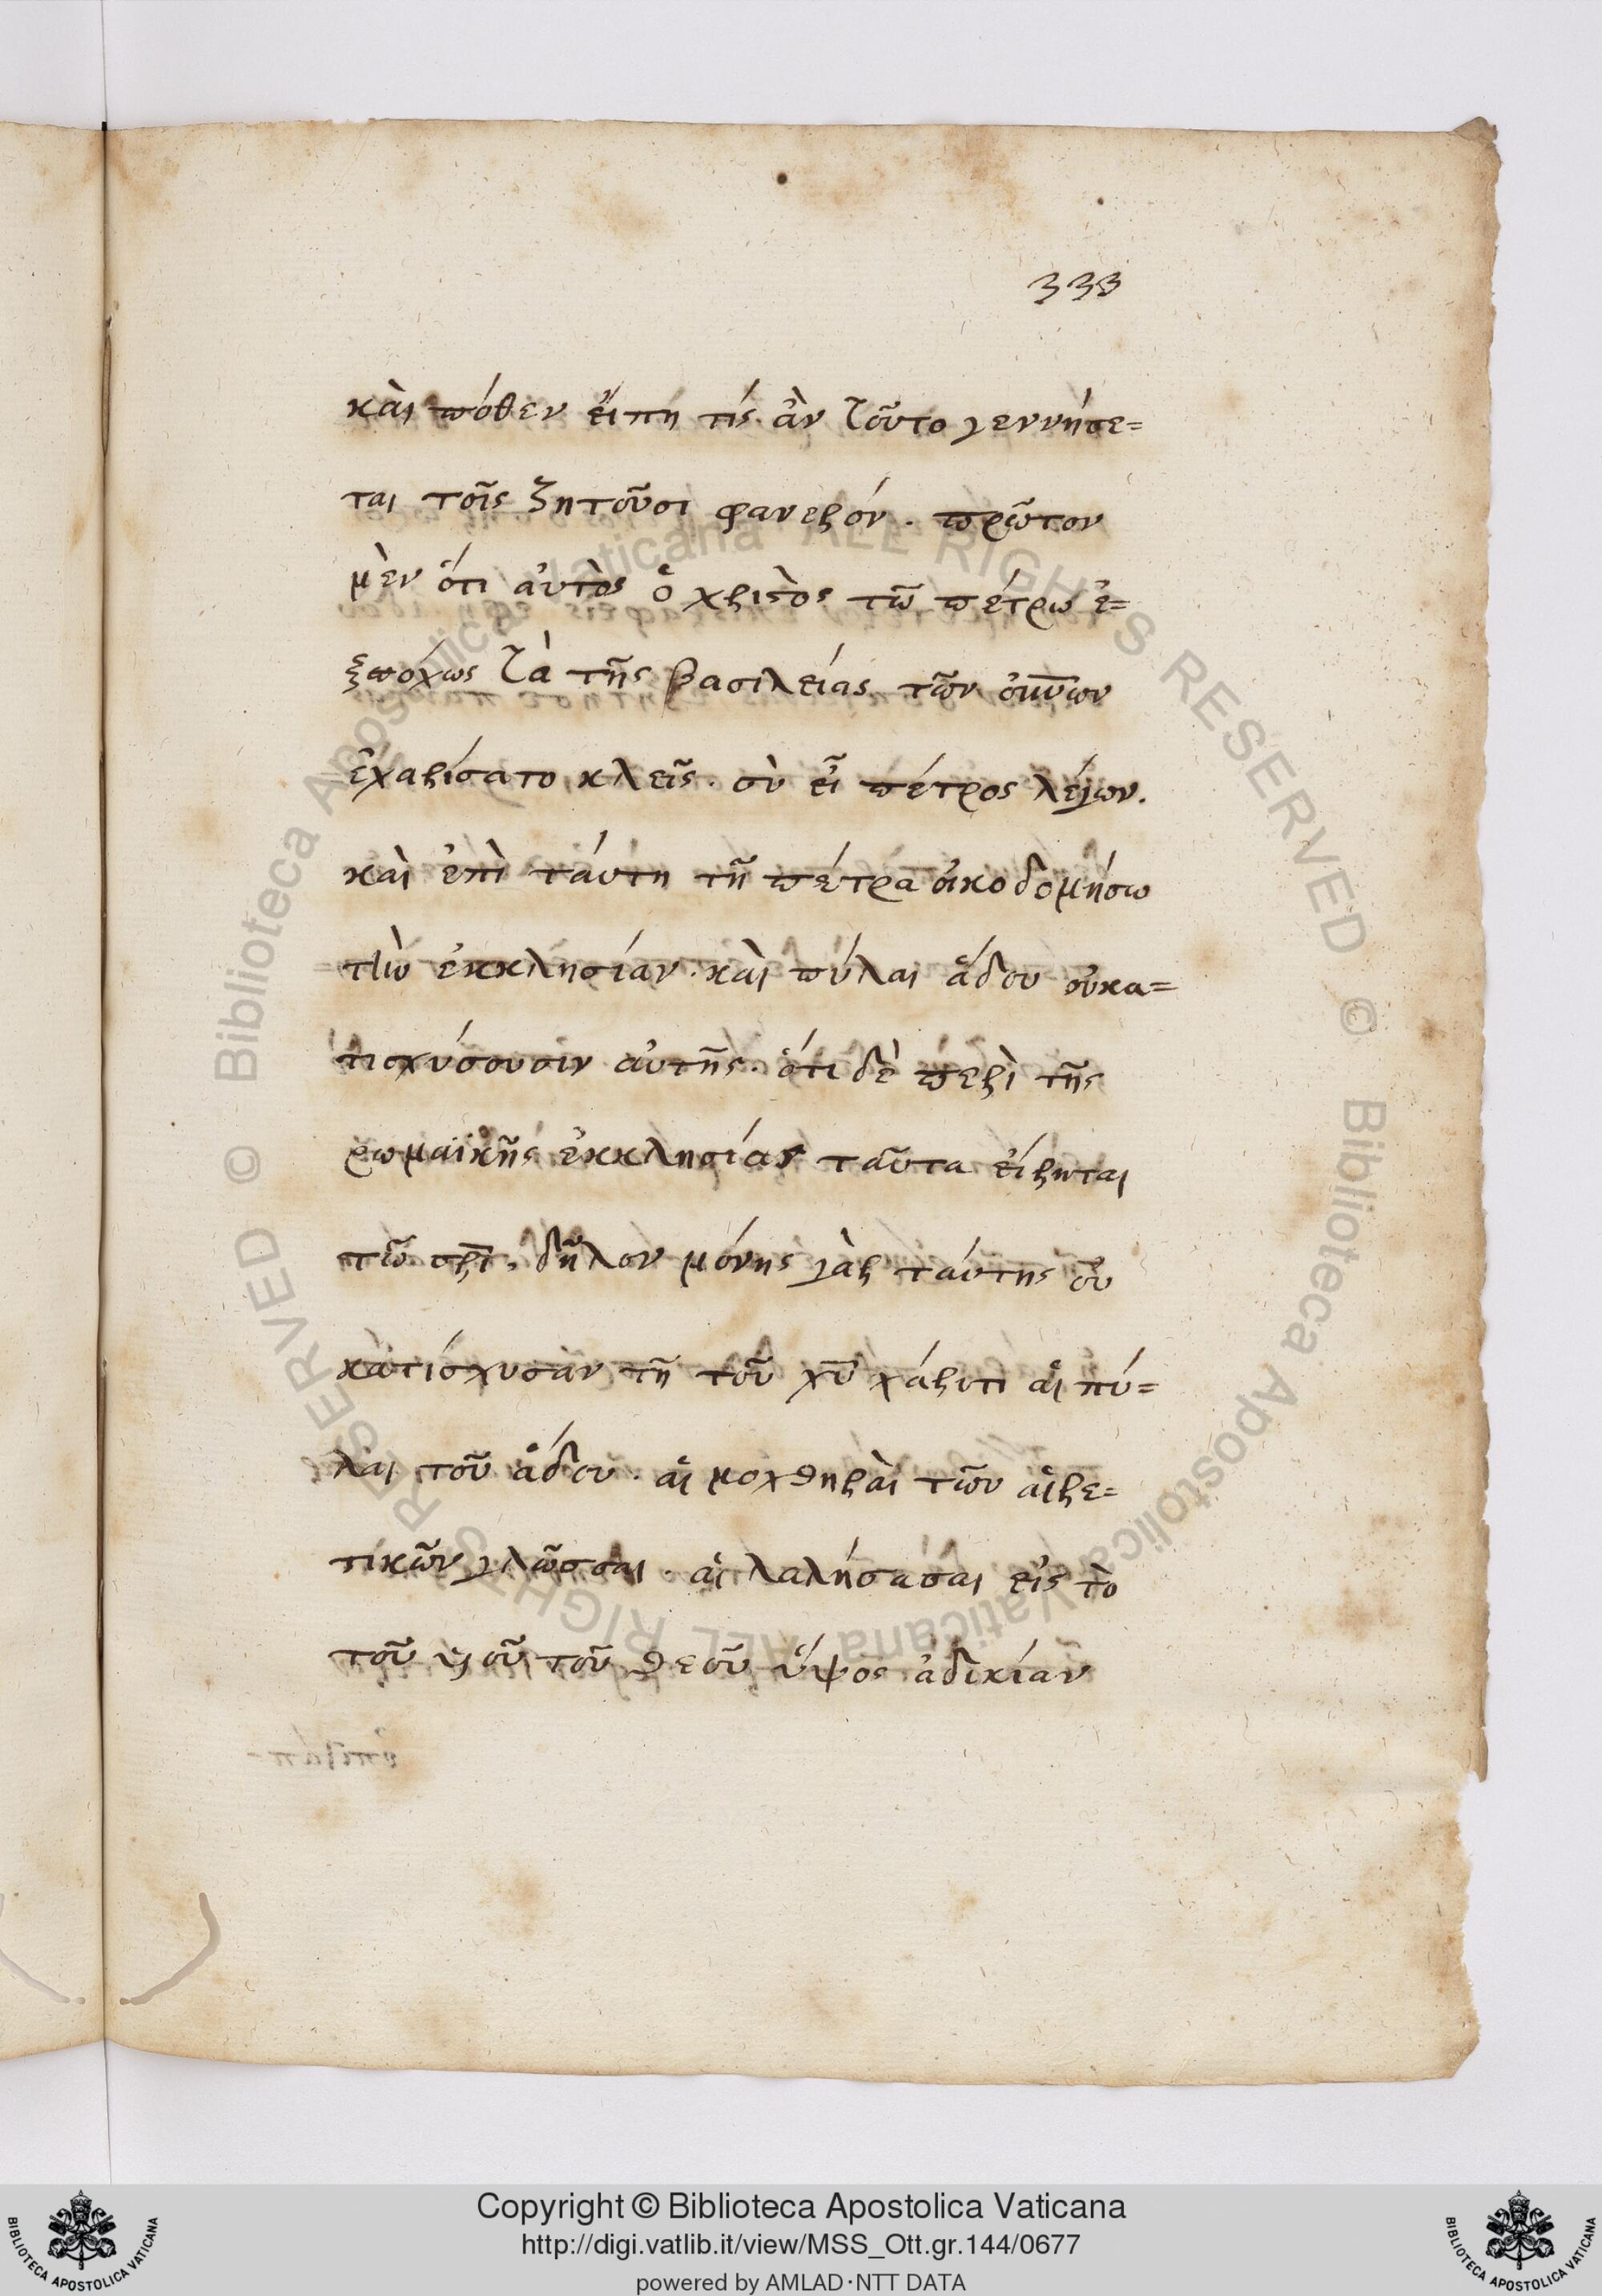 333
καὶ πόθεν εἴπη τίς ἂν τοῦτο γεννήσε=
ται τοῖς ζητοῦσι φανερόν. πρῶτον
μὲν ὅτι αὐτὸς ὁ χριστὸς τῶ πέτρω ἐ=
ξπόχως τὰ τῆς βασιλείας τῶν οὐνῶν
ἐχαρίσατο κλεῖς. σὺ εἶ πέτρος λέγων.
καὶ ἐπὶ ταύτη τῆ πέτρα οἰκοδομήσω
τὴν ἐκκλησίαν. καὶ πύλαι ἅδου οὐκα=
τισχύσουσιν αὐτῆς. ὅτι δὲ περὶ τῆς
ρωμαϊκῆς ἐκκλησίας ταῦτα εἴρηται
τῶ σρι, δῆλον μόνης γὰρ ταύτης οὐ
κατίσχυσαν τῆ τοῦ χυ χάριτι αἱ πύ=
λαι τοῦ ἅδου. αἱ μοχθηραὶ τῶν αἱρε=
τικῶν γλῶσσαι. αἱ λαλήσασαι εἰς τὸ
τοῦ υἱοῦ τοῦ θεοῦ ὕψος ἀδικίαν
© Biblioteca Apostolica Vaticana ALL RIGHTS RESERVED
© Biblioteca Apostolica Vaticana ALL RIGHTS RESERVED
Copyright © Biblioteca Apostolica Vaticana
http://digi.vatlib.it/view/MSS_Ott.gr.144/0677
powered by AMLAD·NTT DATA
BIBLIOTECA APOSTOLICA VATICANA
BIBLIOTECA APOSTOLICA VATICANA